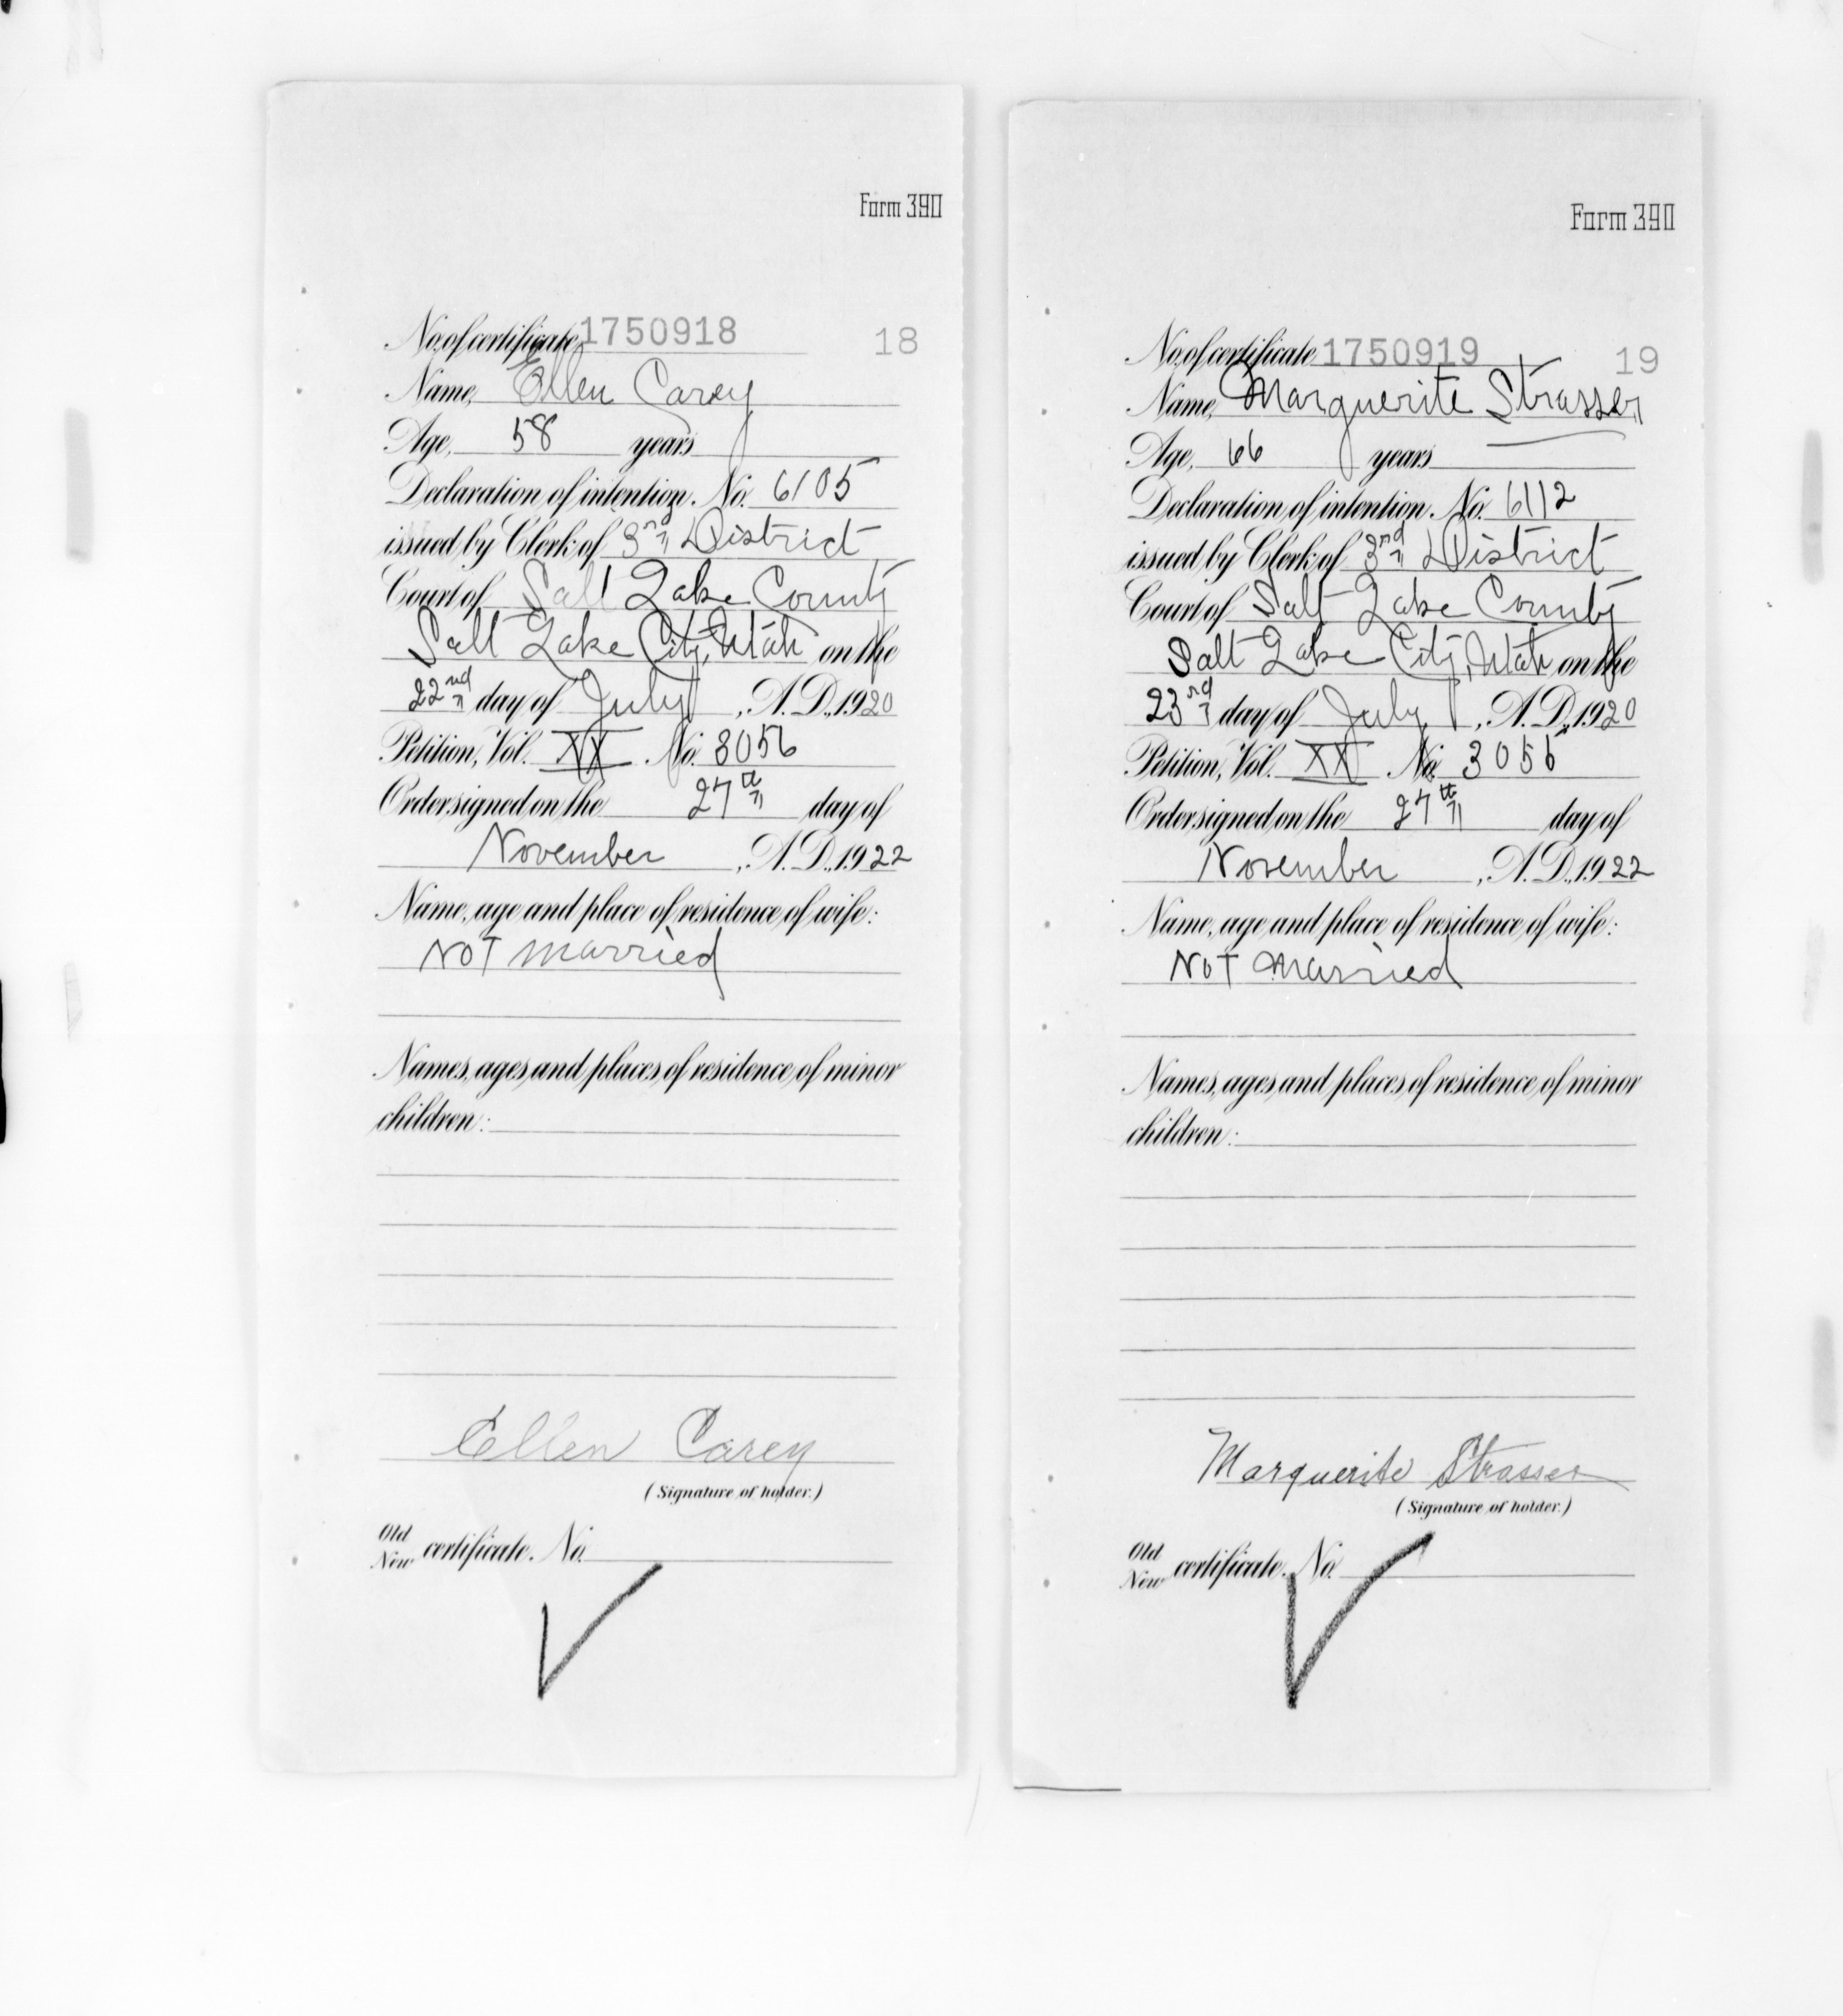 Form 390
No. of certificate, 1750918 18
Name, Ellen Carey
Age, 58 years
Declaration of intention. No. 6105
issued by Clerk of 3rd District
Court of Salt Lake County
Salt Lake City, Utah on the
22nd day of July, A.D., 1920
Petition, Vol. XX No. 3056
Order signed on the 27th day of
November, A.D., 1922
Name, age and place of residence of wife:
NOT married
Names, ages and places of residence of minor
children:
Ellen Carey
(Signature of holder.)
Old
New certificate. No.
Form 390
No. of certificate 1750919 19
Name, Marguerite Strasser
Age, 66 years
Declaration of intention. No. 6112
issued by Clerk of 3rd District
Court of Salt Lake County
Salt Lake City, Utah on the
23rd day of July, A.D., 1920
Petition, Vol. XX No.
Order signed on the 27th day of
November, A.D., 1922
Name, age and place of residence of wife:
NOT married
Names, ages and places of residence of minor
children:
Marguerite Strasser
(Signature of holder.)
Old
New certificate. No.